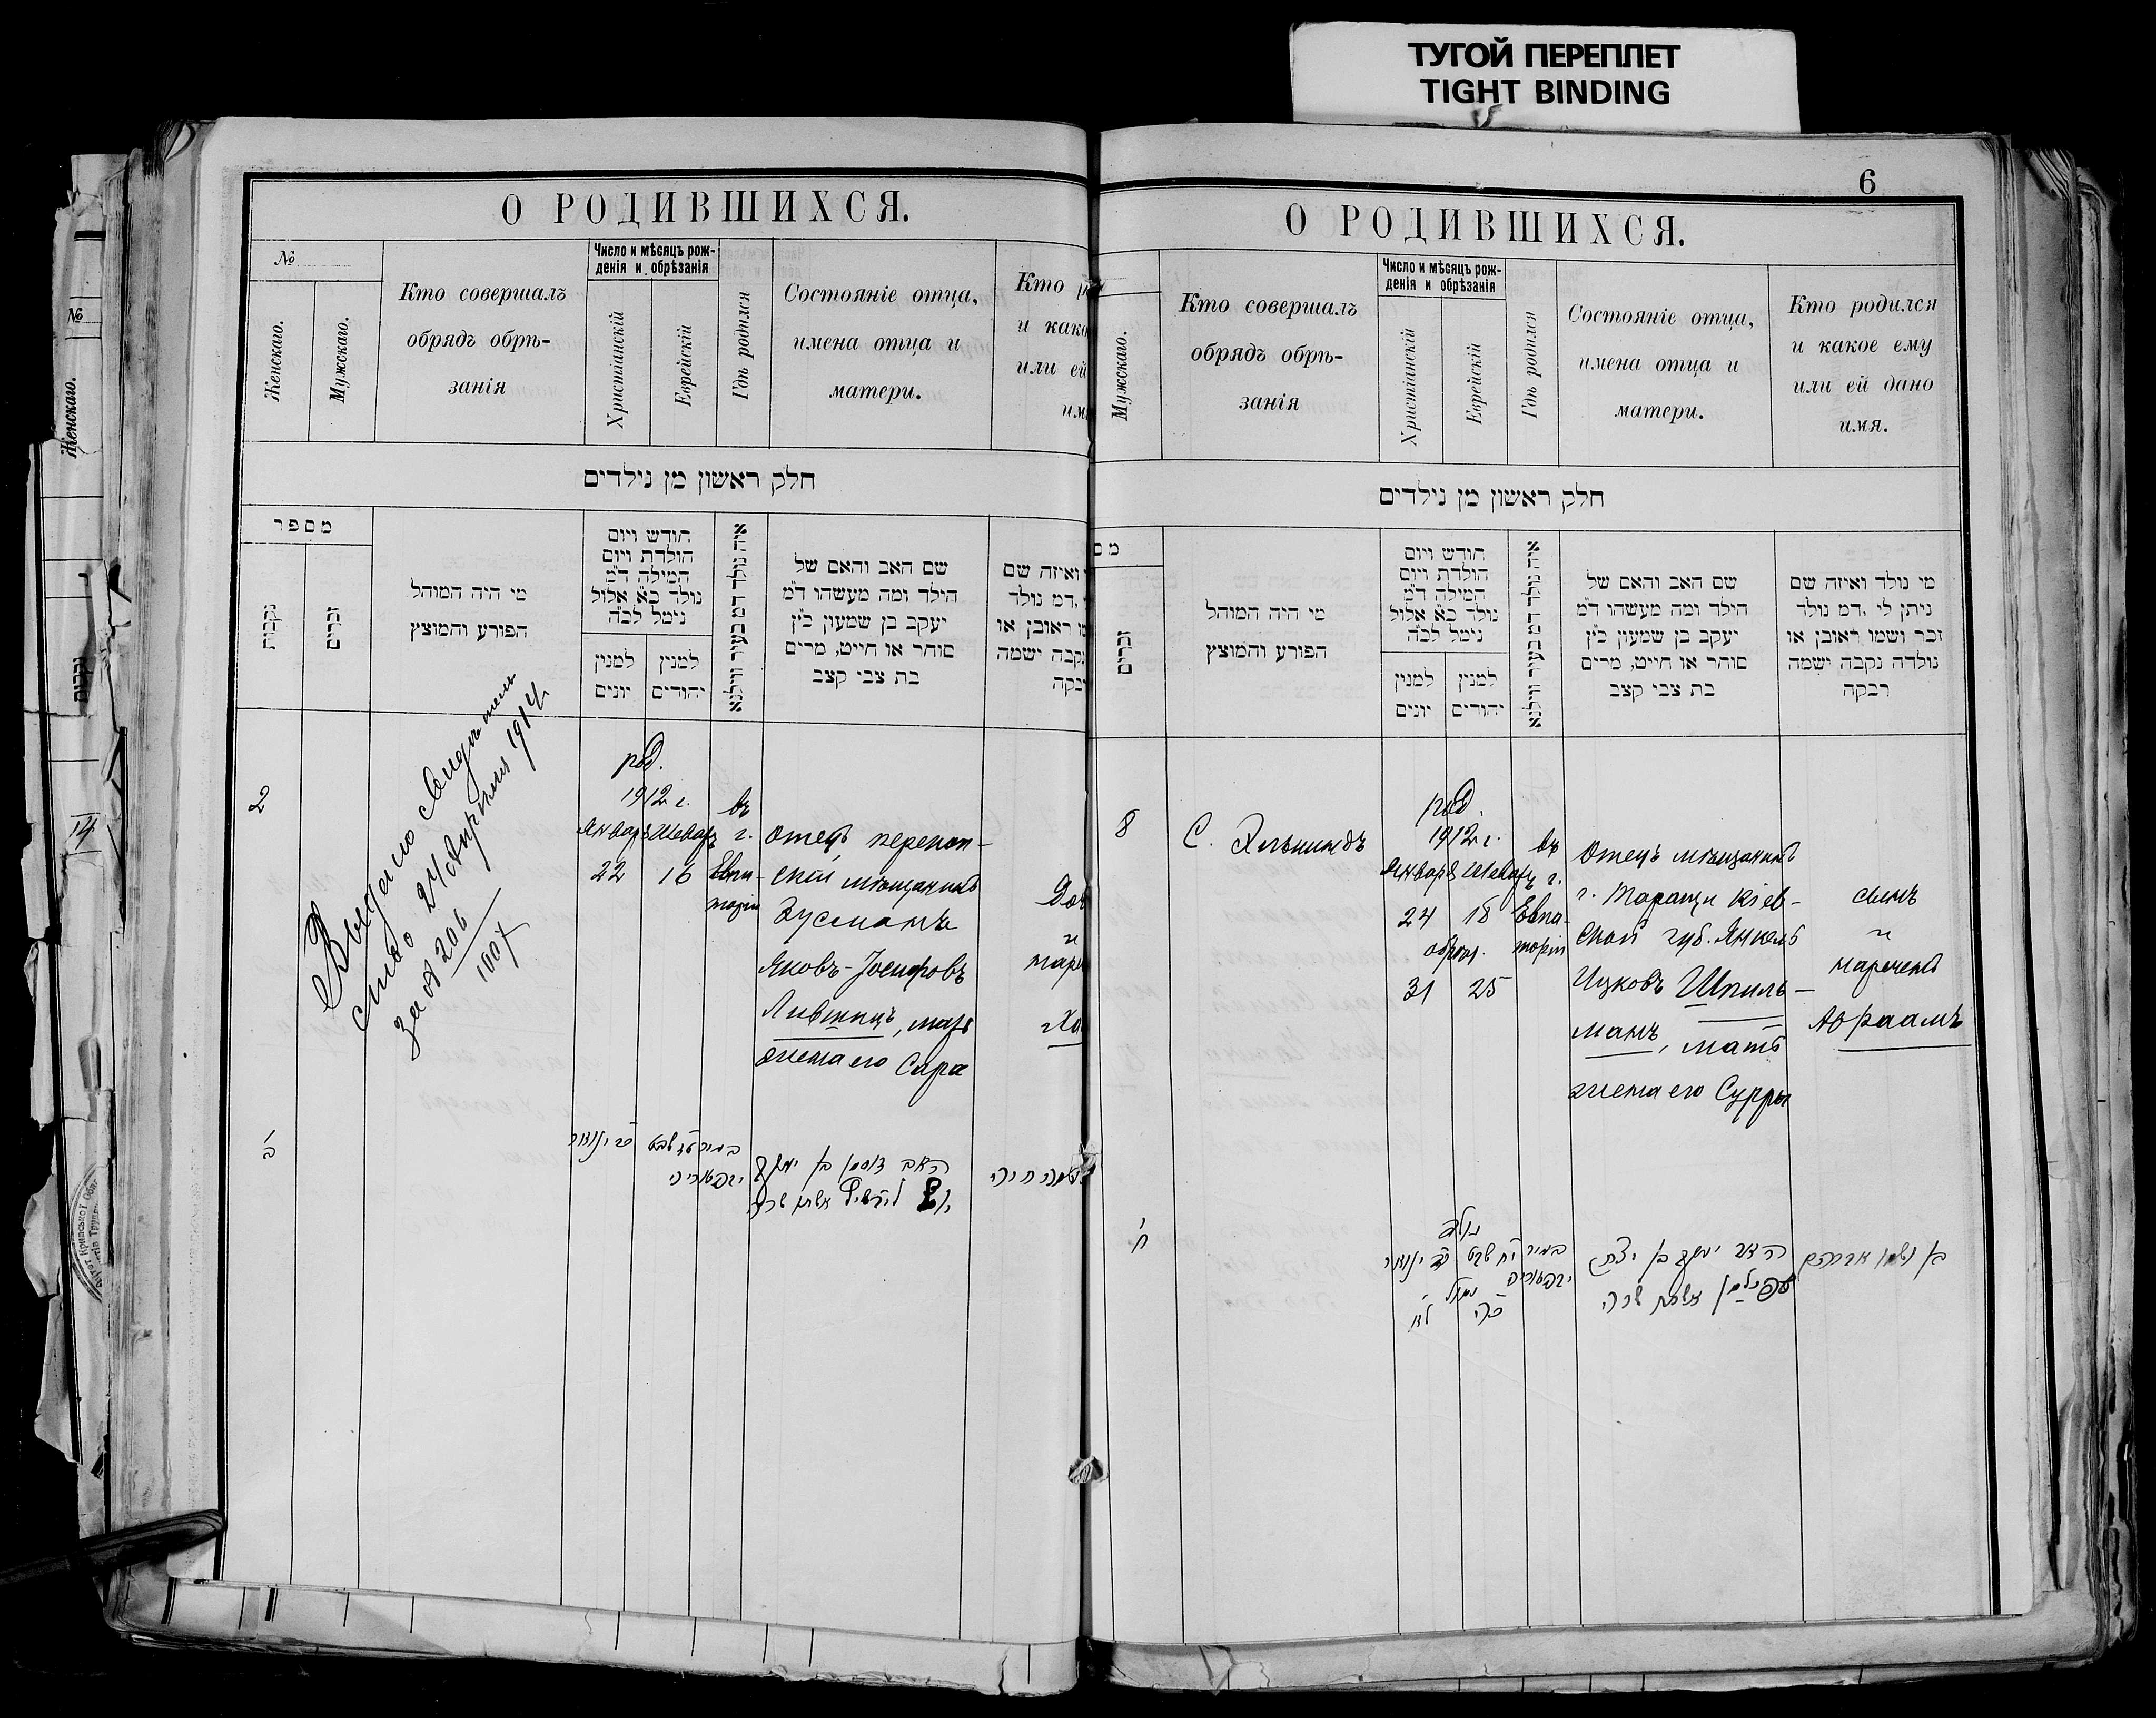 ТУГОЙ ПЕРЕПЛЕТ
TIGHT BINDING
О РОДИВШИХСЯ.
№
Женскаго.
Мужскаго.
Кто совершалъ
обрядъ обрѣ-
занія
Число и мѣсяцъ рож-
денія и обрѣзанія
Христіанскій
Еврейскій
Гдѣ родился
Состояніе отца,
имена отца и
матери.
Кто р
и како
или ей
им
חלק ראשון מן נילדים
מספר
נקבות
זכרים
מי היה המוהל
הפורע והמוצץ
חודש ויום
הולדת ויום
המילה ד״מ
נולד כ״א אלול
נימל לכ״ה
למנין
יונים
למנין
יהודים
איה נולד דמ בעיר ווילנא
שם האב והאם של
הילד ומה מעשהו ד״מ
יעקב בן שמעון כ״ץ
סוחר או חייט, מרים
בת צבי קצב
ואיזה שם
דמ נולד
ראובן או
נקבה ישמה
רבקה
2
Выдано свидѣтель
ство 24 Апрѣля 1914 г.
за № 206
1007
род.
1912 г.
Января Шеватъ
22 16
въ
г.
Евпа-
торіи
Отецъ перекоп-
скій мѣщанинъ
Зусманъ
Яковъ-Іосифовъ
Лившицъ, мать
жена его Сара
Доч
и
наре
Ха
ב׳
כ״ב ינואר
ט״ז שבט
בעיר
יבפטוריה
האב זוסמן בן יעקב
ליפשיץ אשתו שרה
ושמה חיה
6
О РОДИВШИХСЯ.
Мужскаго.
Кто совершалъ
обрядъ обрѣ-
занія
Число и мѣсяцъ рож-
денія и обрѣзанія
Христіанскій
Еврейскій
Гдѣ родился
Состояніе отца,
имена отца и
матери.
Кто родился
и какое ему
или ей дано
имя.
חלק ראשון מן נילדים
מס
זכרים
מי היה המוהל
הפורע והמוצץ
חודש ויום
הולדת ויום
המילה ד״מ
נולד כ״א אלול
נימל לכ״ה
למנין
יונים
למנין
יהודים
איה נולד דמ בעיר ווילנא
שם האב והאם של
הילד ומה מעשהו ד״מ
יעקב בן שמעון כ״ץ
סוחר או חייט, מרים
בת צבי קצב
מי נולד ואיזה שם
ניתן לי, דמ נולד
זכר ושמו ראובן או
נולדה נקבה ישמה
רבקה
8
С.
род.
1912 г.
Января Шеватъ
24 18
обрѣз.
31 25
въ
г.
Евпа-
торіи
Отецъ мѣщанинъ
г. Таращи Кіев-
ской губ. Янкель
Ицковъ Шпиль-
манъ, мать
жена его Сурры
сынъ
и
нареченъ
Авраамъ
ח׳
נולד
ינואר
י״ח שבט
בעיר
יבפטוריה
נימול
כ״ה
ל״א
האב יעקב בן יצחק
שפילמן אשתו שרה
בן ושמו אברהם
№
Женскаго.